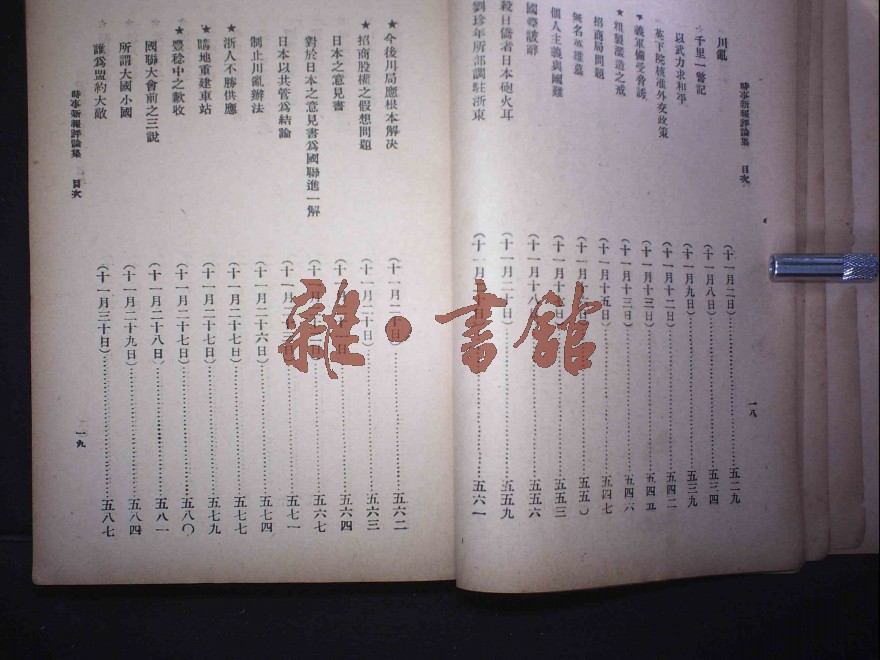 時事新報評論集 目次 一八
川亂 (十一月二日)…………五二九
☆千里一瞥記 (十一月八日)…………五三四
以武力求和平 (十一月九日)…………五三九
英下院核准外交政策 (十一月十二日)…………五四二
義軍備受脅誘 (十一月十三日)…………五四五
★粗製濫造之戒 (十一月十三日)…………五四六
招商局問題 (十一月十五日)…………五四七
無名英雄墓 日)…………五五〇
個人主義與國難 (十一月十 日)…………五五三
國尊詖辭 (十一月十八日)…………五五六
殺日僑者日本砲火耳 (十一月二十日)…………五五九
劉珍年所部調駐浙東 (十一月二十日)…………五六一
★今後川局應根本解決 (十一月二十日)…………五六二
★招商股權之假想問題 (十一月二十日)…………五六三
日本之意見書 (十一月 日)…………五六四
對於日本之意見書爲國聯進一解 (十一月 日)…………五六七
日本以共管爲結論 (十一月二十 日)…………五七一
制止川亂辦法 (十一月二十六日)…………五七四
★浙人不勝供應 (十一月二十七日)…………五七七
★購地重建車站 (十一月二十七日)…………五七九
★豐稔中之歉收 (十一月二十七日)…………五八〇
國聯大會前之三說 (十一月二十八日)…………五八一
☆所謂大國小國 (十一月二十九日)…………五八四
☆誰爲盟約大敵 (十一月三十日)…………五八七
時事新報評論集 目次 一九
雜·書館